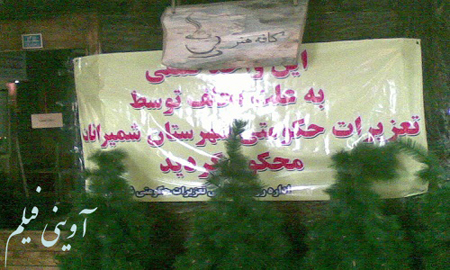 کافه هنر
این واحد صنفی
به علت تخلف توسط
تعزیرات حکومتی شهرستان شمیرانات
محکوم گردید
تعزیرات حکومتی
آوینی فیلم